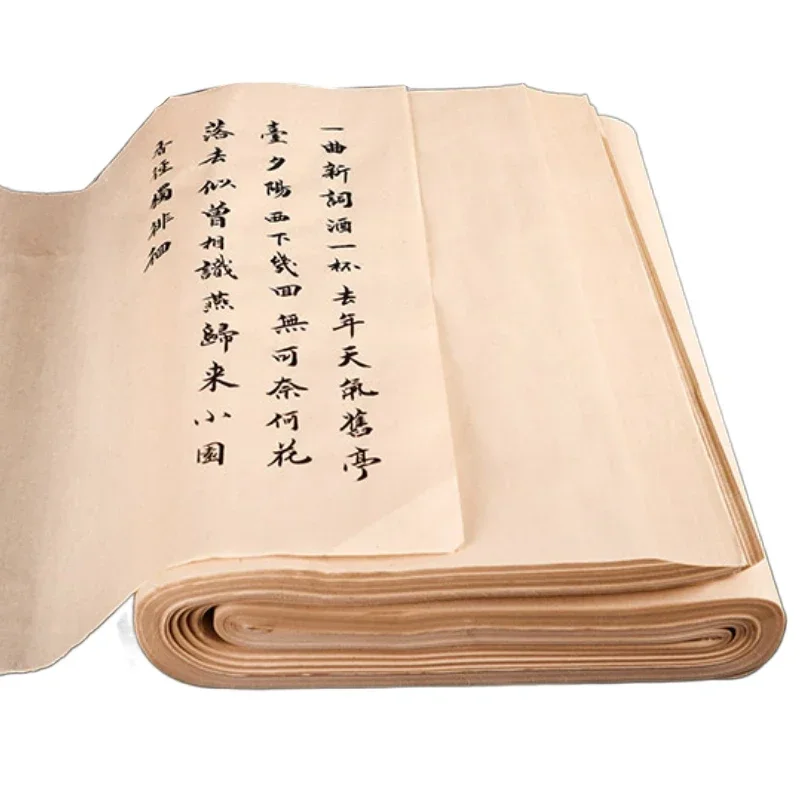 一曲新詞酒一杯去年天氣舊亭
臺夕陽西下幾回無可奈何花
落去似曾相識燕歸来小園
香径獨徘徊